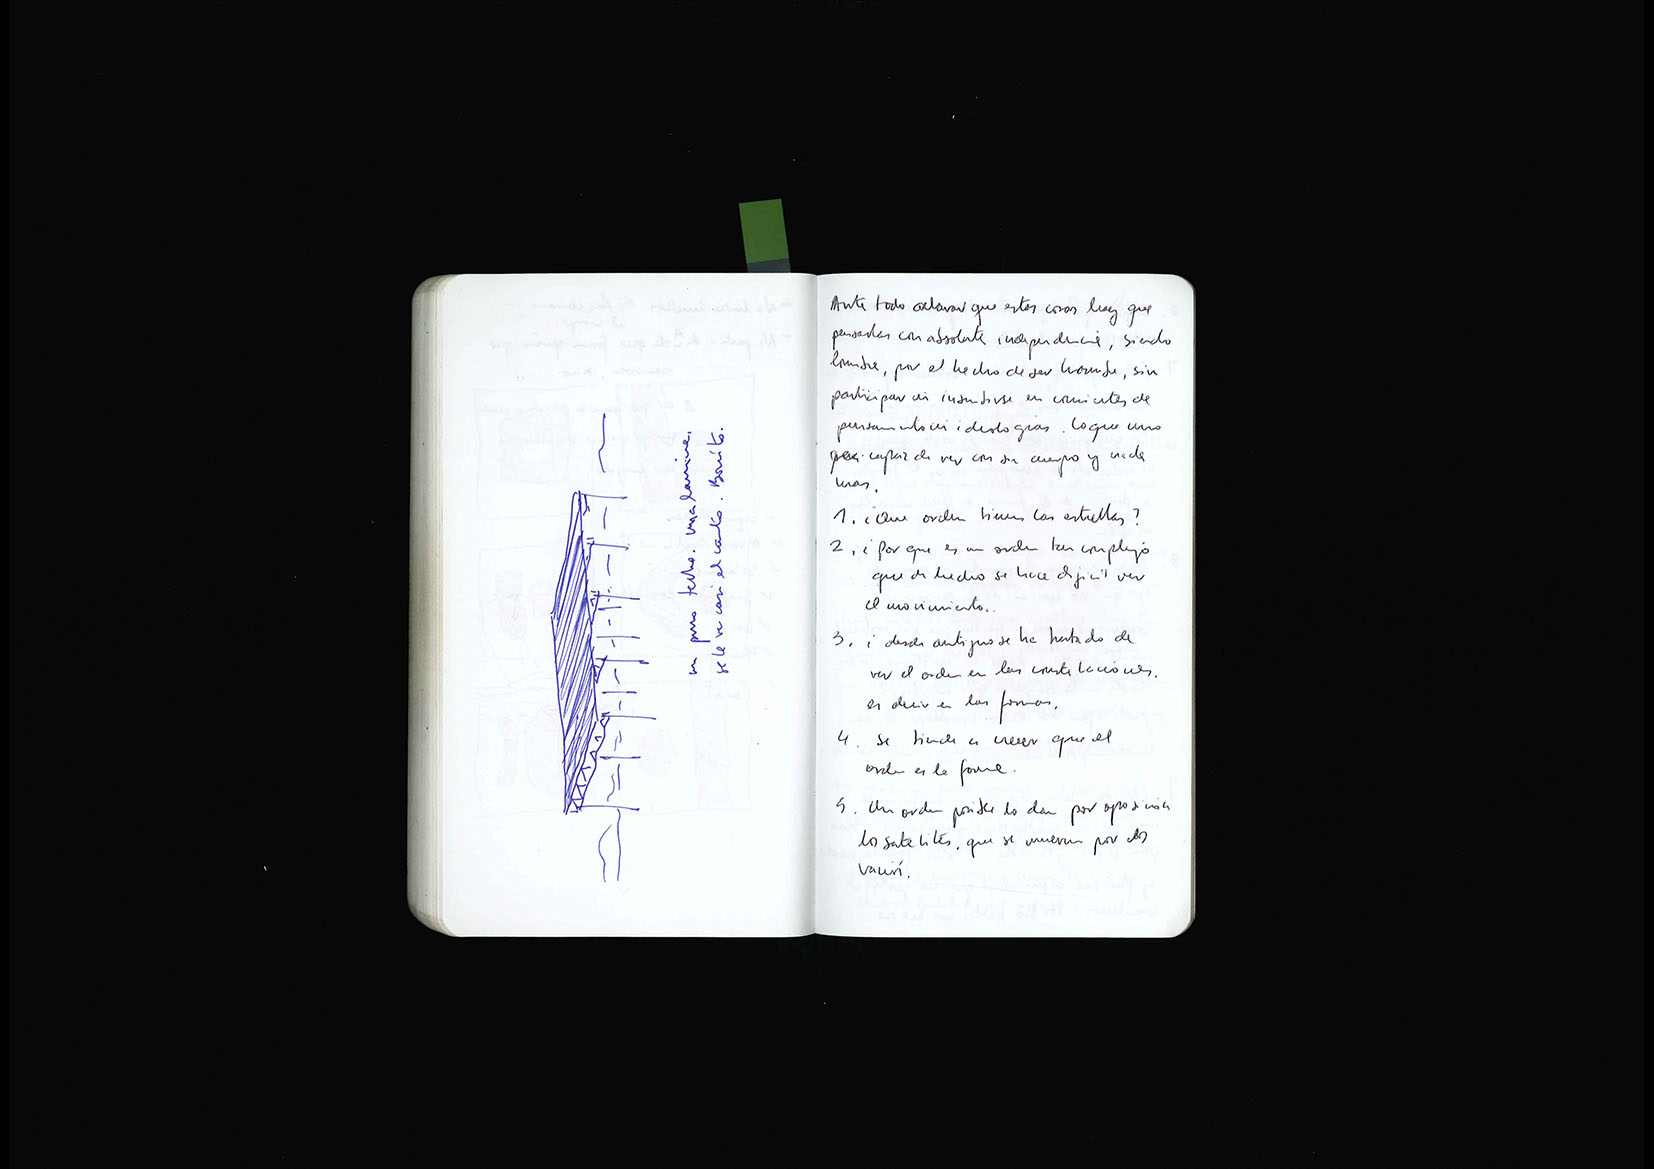 un puro techo. una lamina.
se le ve casi el canto. Bonito.
Ante todo aclarar que estas cosas hay que
pensarlas con absoluta independencia, siendo
hombre, por el hecho de ser hombre, sin
participar ni insertarse en corrientes de
pensamiento ni ideologias. Lo que uno
capaz de ver con su cuerpo y nada
mas.
1. ¿Que orden tienen las estrellas?
2. ¿Por que es un orden tan complejo
que de hecho se hace dificil ver
el movimiento..
3. ¿ desde antiguo se ha tratado de
ver el orden en las constelaciones.
es decir en las formas.
4. Se tiende a creer que el
orden es la forma.
5. Un orden posible lo dan por oposicion
los satelites, que se mueven por